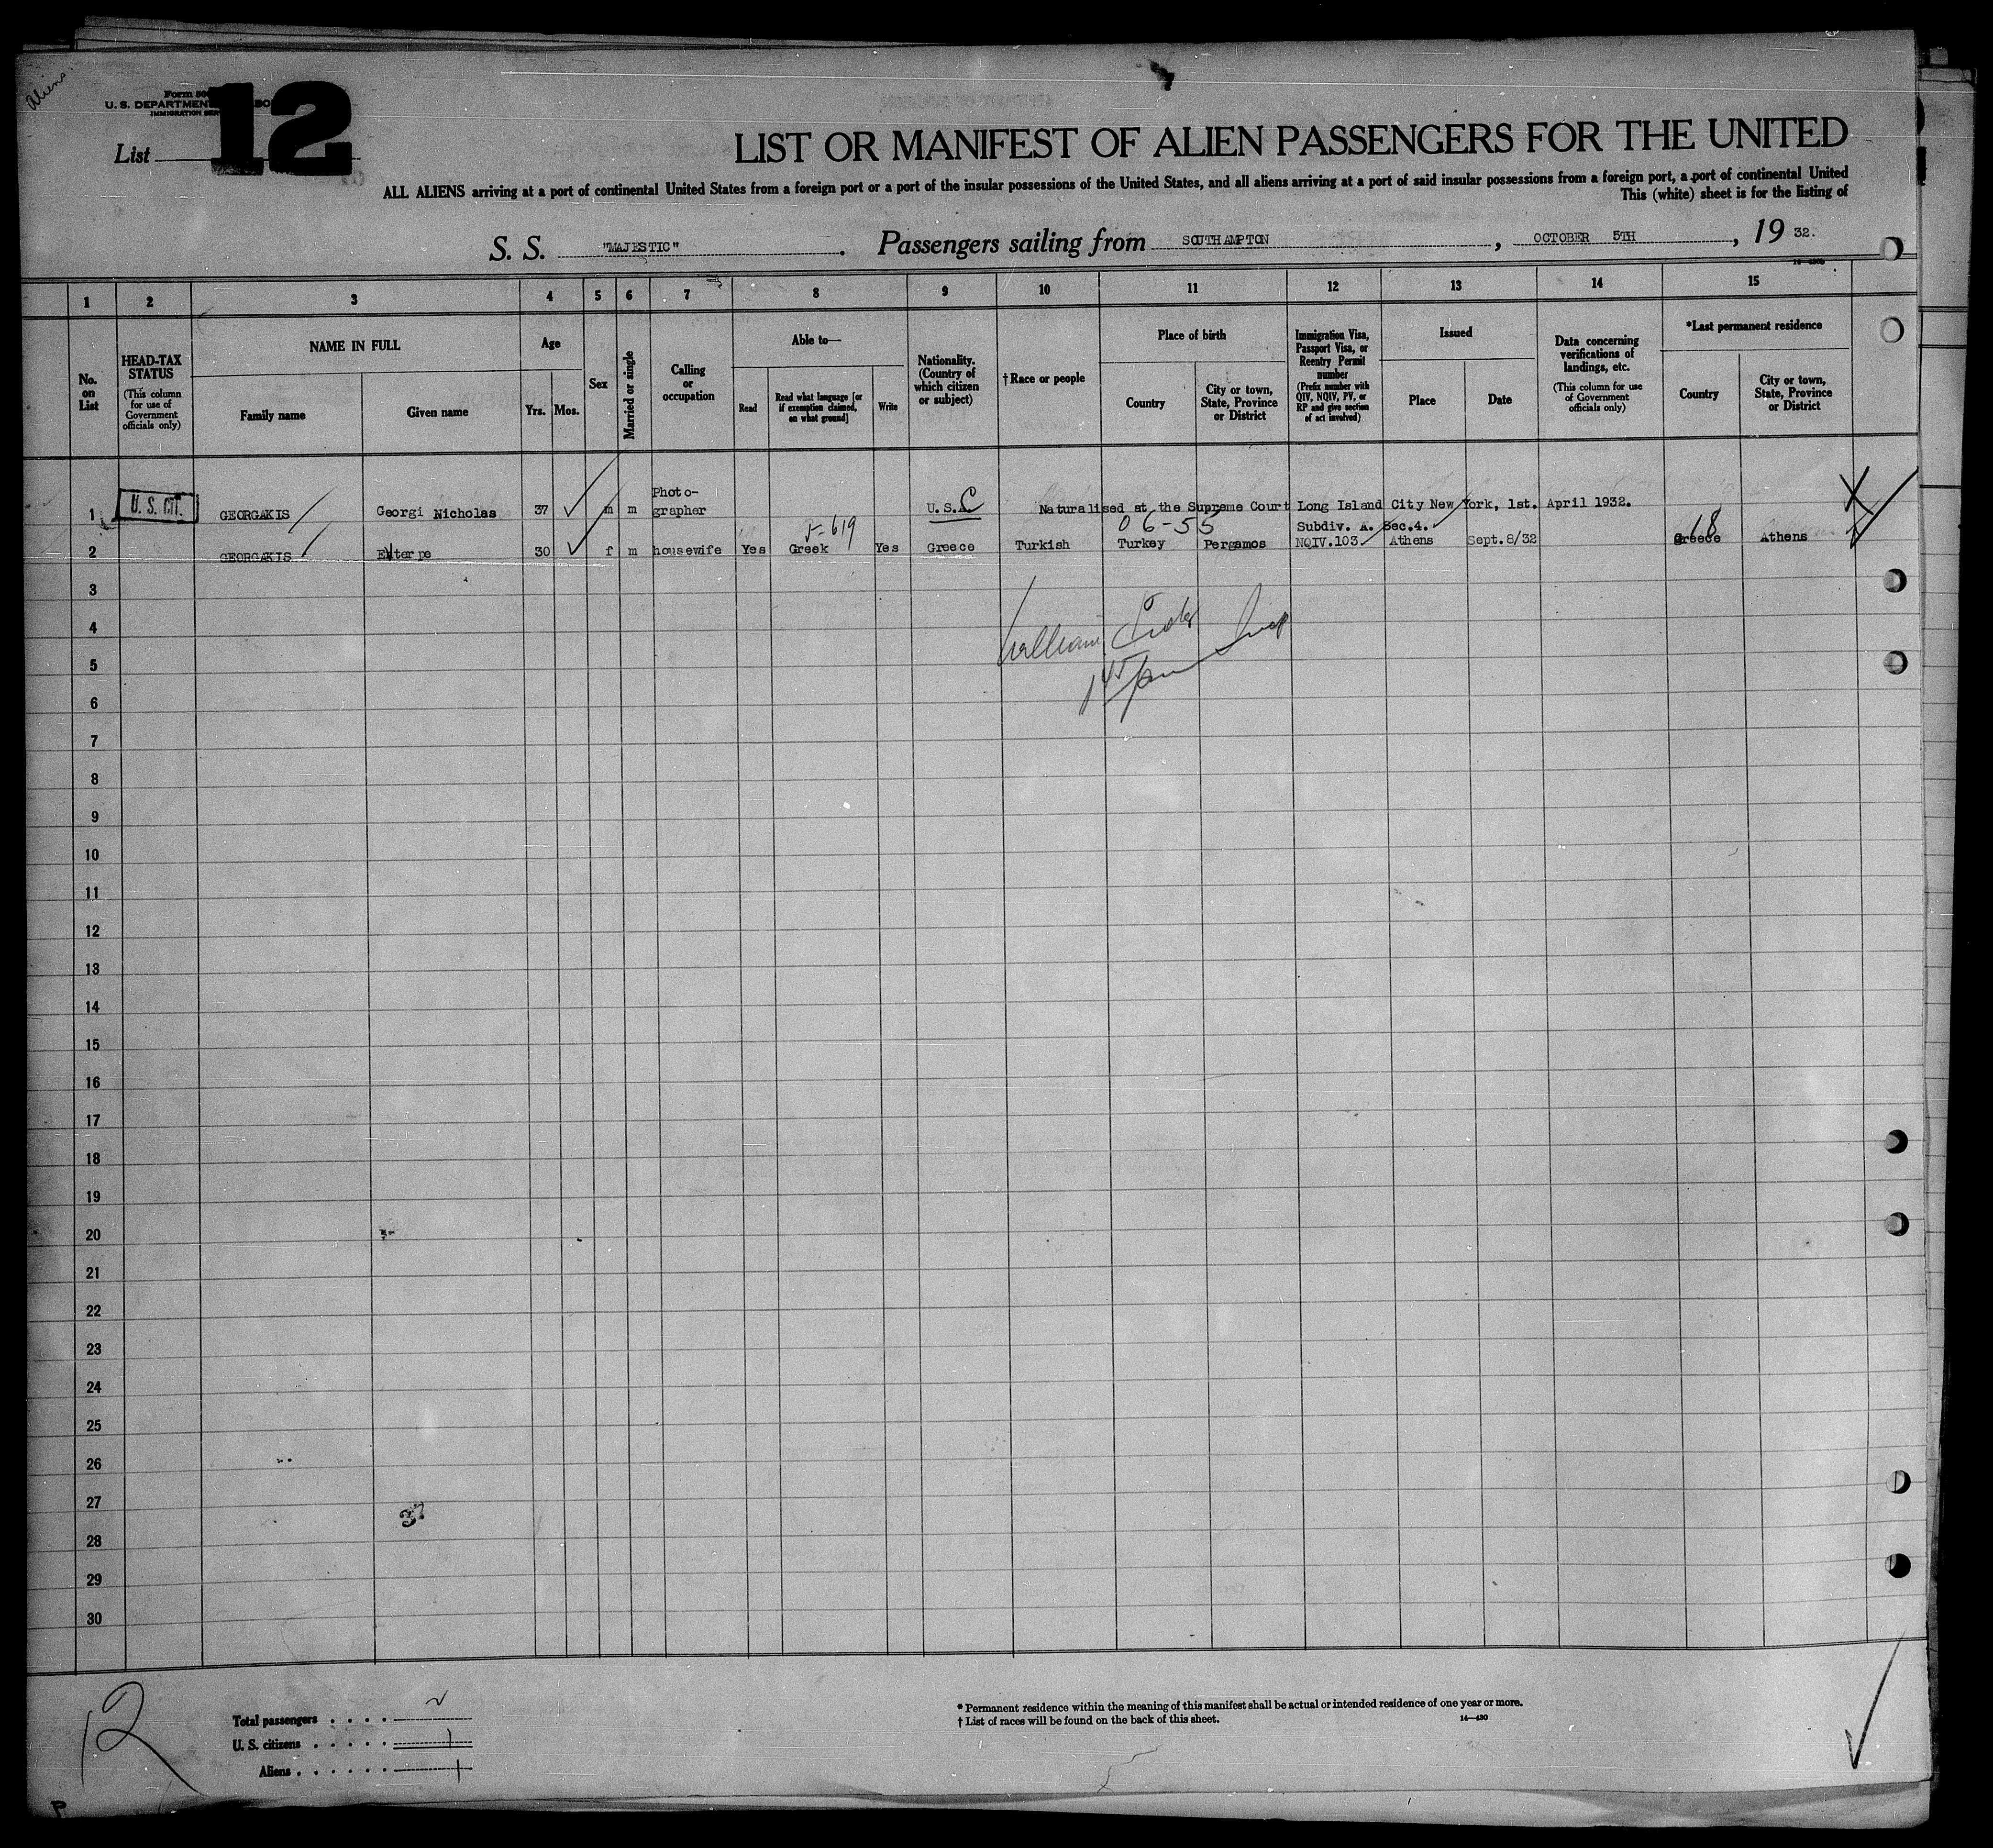 Aliens
Form 50
U. S. DEPARTMEN
IMMIGRATION SER
List 12
LIST OR MANIFEST OF ALIEN PASSENGERS FOR THE UNITED
ALL ALIENS arriving at a port of continental United States from a foreign port or a port of the insular possessions of the United States, and all aliens arriving at a port of said insular possessions from a foreign port, a port of continental United
This (white) sheet is for the listing of
S. S. "MAJESTIC". Passengers sailing from SOUTHAMPTON, OCTOBER 5TH, 19 32.
1 2 3 4 5 6 7 8 9 10 11 12 13 14 15
No. on List
HEAD-TAX STATUS (This column for use of Government officials only)
NAME IN FULL
Family name
Given name
Age
Yrs. Mos.
Sex
Married or single
Calling or occupation
Able to—
Read
Read what language [or if exemption claimed, on what ground]
Write
Nationality. (Country of which citizen or subject)
†Race or people
Place of birth
Country
City or town, State, Province or District
Immigration Visa, Passport Visa, or Reentry Permit number (Prefix number with QIV, NQIV, PV, or RP and give section of act involved)
Issued
Place
Date
Data concerning verifications of landings, etc. (This column for use of Government officials only)
*Last permanent residence
Country
City or town, State, Province or District
1 U. S. CIT. GEORGAKIS Georgi Nicholas 37 m m Photo-grapher U.S.C Naturalised at the Supreme Court Long Island City New York, 1st. April 1932.
5-619 06-55 Subdiv. A. Sec.4. 68
2 GEORGAKIS Exterpe 30 f m housewife Yes Greek Yes Greece Turkish Turkey Pergamos NQIV.103 Athens Sept.8/32 Greece Athens
3
4
William
5
6
7
8
9
10
11
12
13
14
15
16
17
18
19
20
21
22
23
24
25
26
27
37
28
29
30
12
Total passengers . . . . 2
U. S. citizens . . . . . 1
Aliens . . . . . . 1
* Permanent residence within the meaning of this manifest shall be actual or intended residence of one year or more.
† List of races will be found on the back of this sheet.
14—430